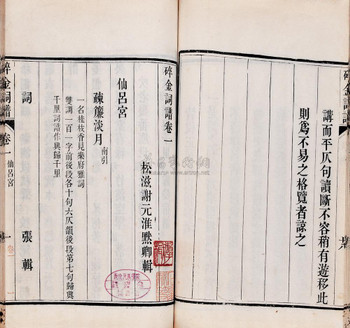 碎金詞譜
講而平仄句讀斷不容稍有遊移此
則爲不易之格覽者諒之
碎金詞譜卷一
松滋謝元淮默卿輯
仙呂宮
疎簾淡月 南引
一名桂枝香見樂府雅詞
雙調一百一字前後段各十句六仄韻後段第七句歸與
千里詞譜作與歸千里
詞
張輯
碎金詞譜
卷一 仙呂宮
一